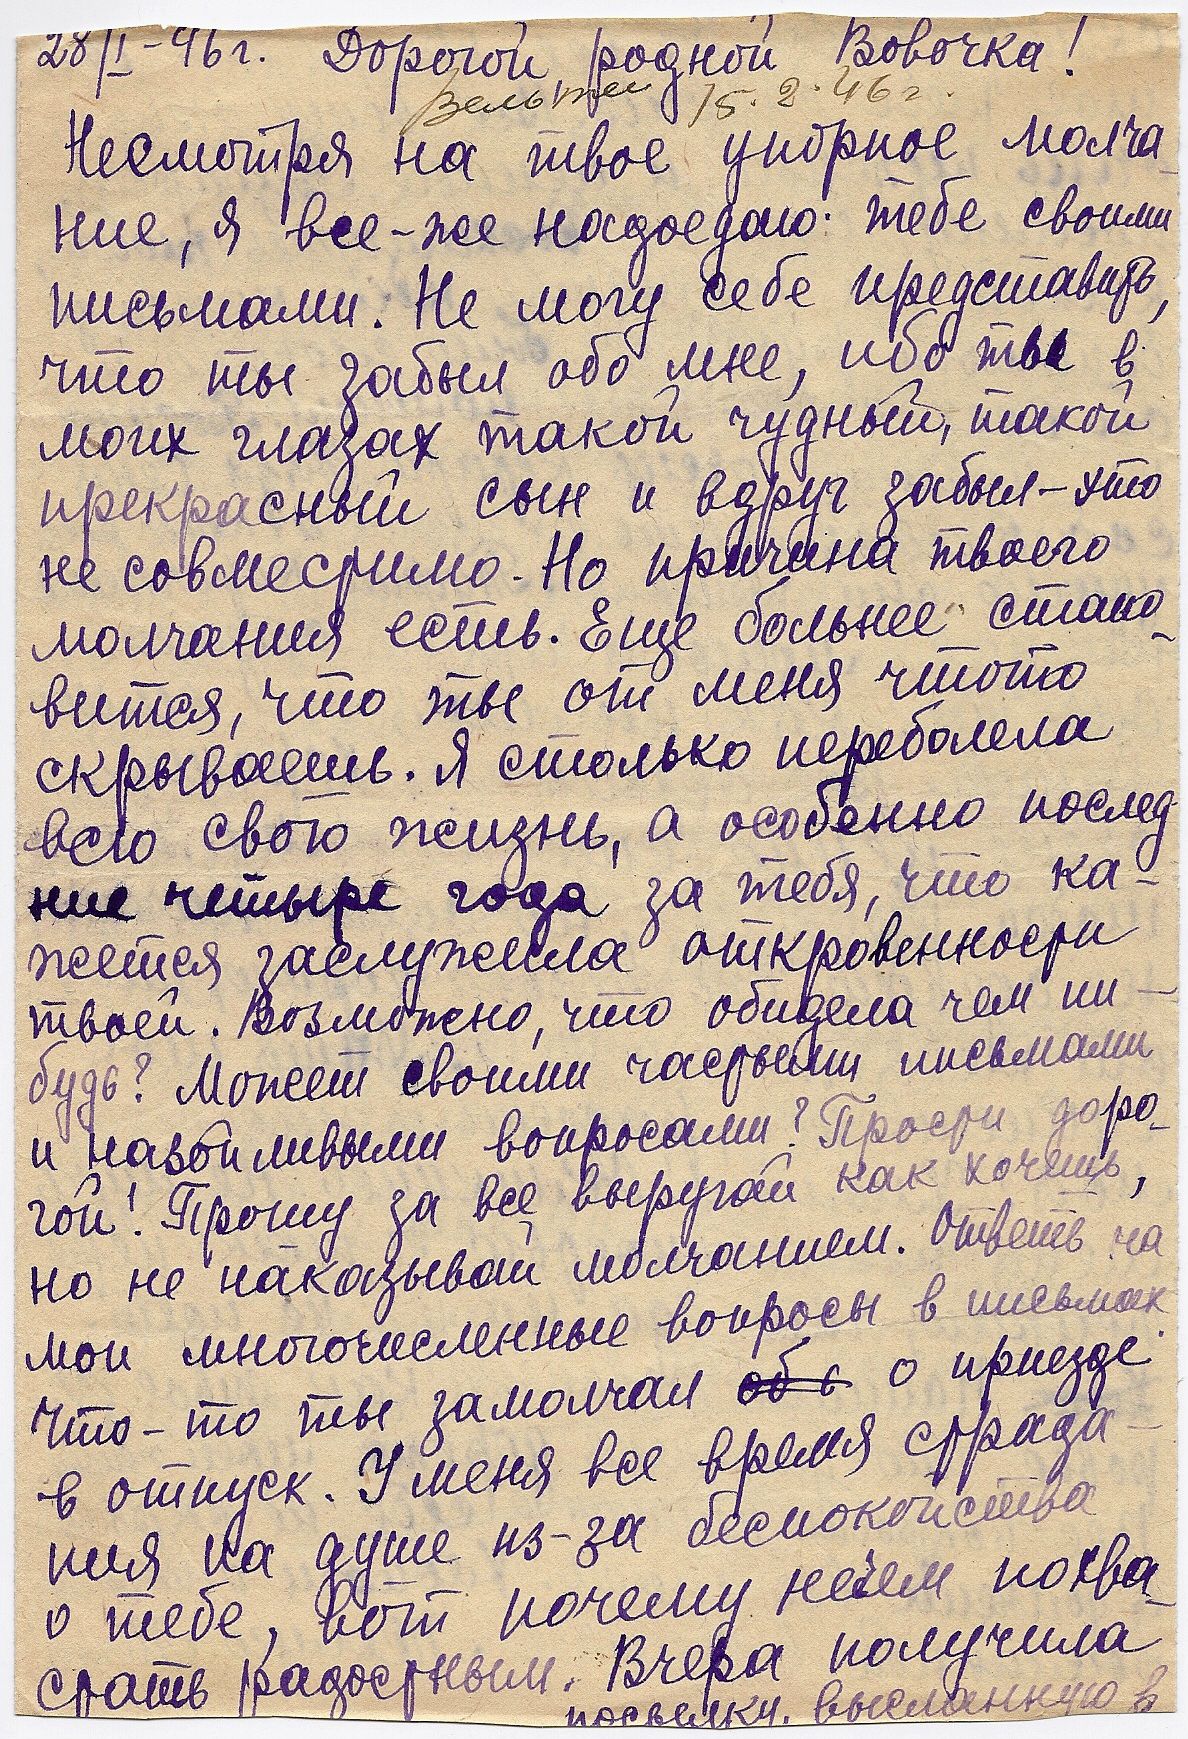 28/I-46 г. Дорогой, родной Вовочка!
Вельтен 15.2.46 г.
Несмотря на твое упорное молча-
ние, я все-же надоедаю тебе своими
письмами. Не могу себе представить,
что ты забыл обо мне, ибо ты в
моих глазах такой чудный, такой
прекрасный сын и вдруг забыл – это
не совместимо. Но причина твоего
молчания есть. Еще больнее стано-
вится, что ты от меня чтото
скрываешь. Я столько переболела
всю свою жизнь, а особенно послед-
ние четыре года за тебя, что ка-
жется заслужила откровенности
твоей. Возможно, что обидела чем ни-
будь? Может своими частыми письмами
и назойливыми вопросами? Прости доро-
гой! Прошу за все выругай как хочешь,
но не наказывай молчанием. Ответь на
мои многочисленные вопросы в письмах
Что-то ты замолчал об о приезде
в отпуск. У меня все время страда-
ния на душе из-за беспокойства
о тебе, вот почему нечем похва-
стать радостным. Вчера получила
посылку, высланную в